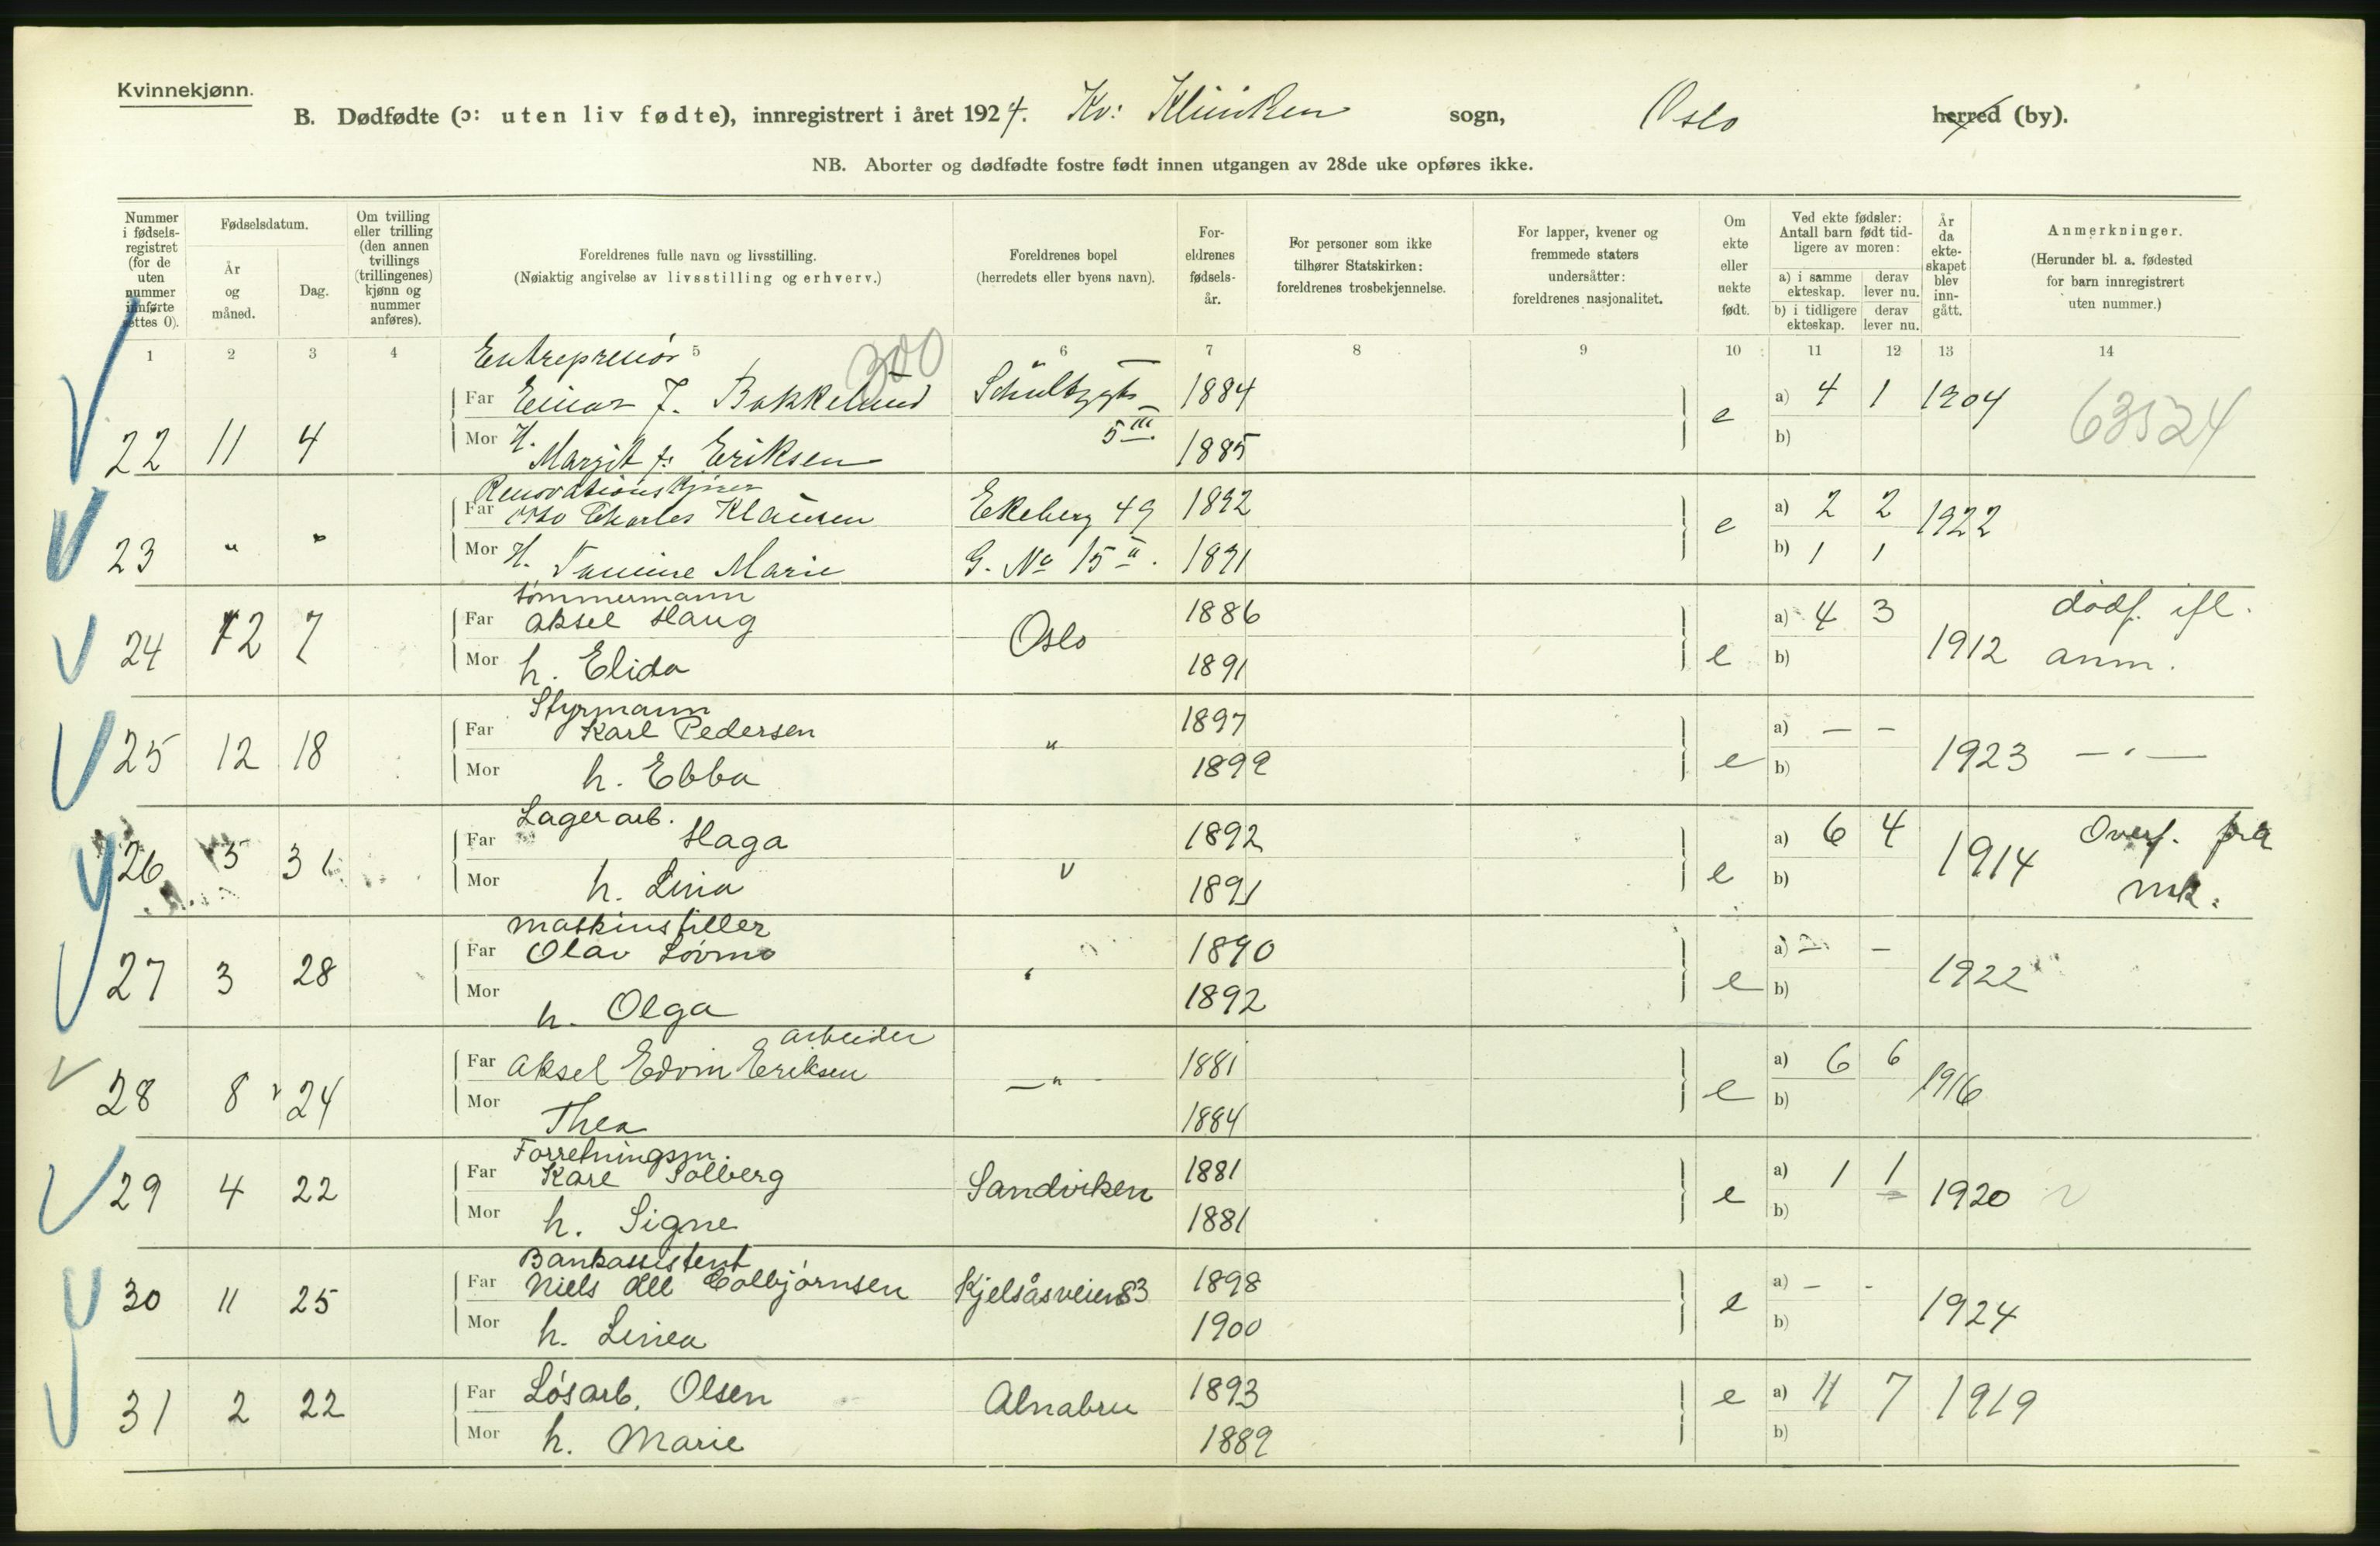 Kvinnekjønn.
B. Dødfødte (ɔ: uten liv fødte), innregistrert i året 1924. Kv: Kliniken sogn, Oslo herred (by).
NB. Aborter og dødfødte fostre født innen utgangen av 28de uke opføres ikke.
Nummer i fødsels-registret (for de uten nummer innførte settes 0).
Fødselsdatum.
År og måned.
Dag.
Om tvilling eller trilling (den annen tvillings (trillingenes) kjønn og nummer anføres).
Foreldrenes fulle navn og livsstilling.
(Nøiaktig angivelse av livsstilling og erhverv.)
Foreldrenes bopel
(herredets eller byens navn).
For-eldrenes fødsels-år.
For personer som ikke tilhører Statskirken: foreldrenes trosbekjennelse.
For lapper, kvener og fremmede staters undersåtter: foreldrenes nasjonalitet.
Om ekte eller uekte født.
Ved ekte fødsler: Antall barn født tid-ligere av moren:
a) i samme ekteskap. derav lever nu.
b) i tidligere ekteskap. derav lever nu.
År da ekte-skapet blev inn-gått.
Anmerkninger.
(Herunder bl. a. fødested for barn innregistrert uten nummer.)
1 2 3 4 5 6 7 8 9 10 11 12 13 14
Entreprenör 300
Far Einar J. Bakkelund Schultzgt 1884 a) 4 1 1904 63524
22 11 4 Mor H. Margit f: Eriksen 5 III. 1885 e b)
Renovationskjører
Far Otto Charles Klausen Ekeberg 49 1892 a) 2 2 1922
23 " " Mor H. Marie G. No 15 II. 1891 e b) 1 1
tømmermann
Far Aksel Haug Oslo 1886 a) 4 3 dødf. ifl.
24 12 7 Mor h. Elida 1891 e b) 1912 anm.
Styrmann
Far Karl Pedersen " 1897 a) — -
25 12 18 Mor h. Ebba 1899 e b) 1923 — " —
Lagerarb.
Far Haga " 1892 a) 6 4 Overf. fra
26 3 31 Mor h. Lina 1891 e b) 1914 mk.
maskinstiller
Far Olav Lövmo " 1890 a) — - 1922
27 3 28 Mor h. Olga 1892 e b)
arbeider
Far Aksel Edvin Eriksen — " 1881 a) 6 6 1916
28 8 24 Mor Thea 1884 e b)
Forretningsm.
Far Karl Solberg Sandviken 1881 a) 1 1 1920
29 4 22 Mor h. Signe 1881 e b)
Bankassistent
Far Niels Colbjørnsen Kjelsåsveien 83 1898 a) - -
30 11 25 Mor h. Linea 1900 e b) 1924
Far Løsarb. Olsen Alnabru 1893 e a) 11 7 1919
31 2 22 Mor h. Marie 1889 b)